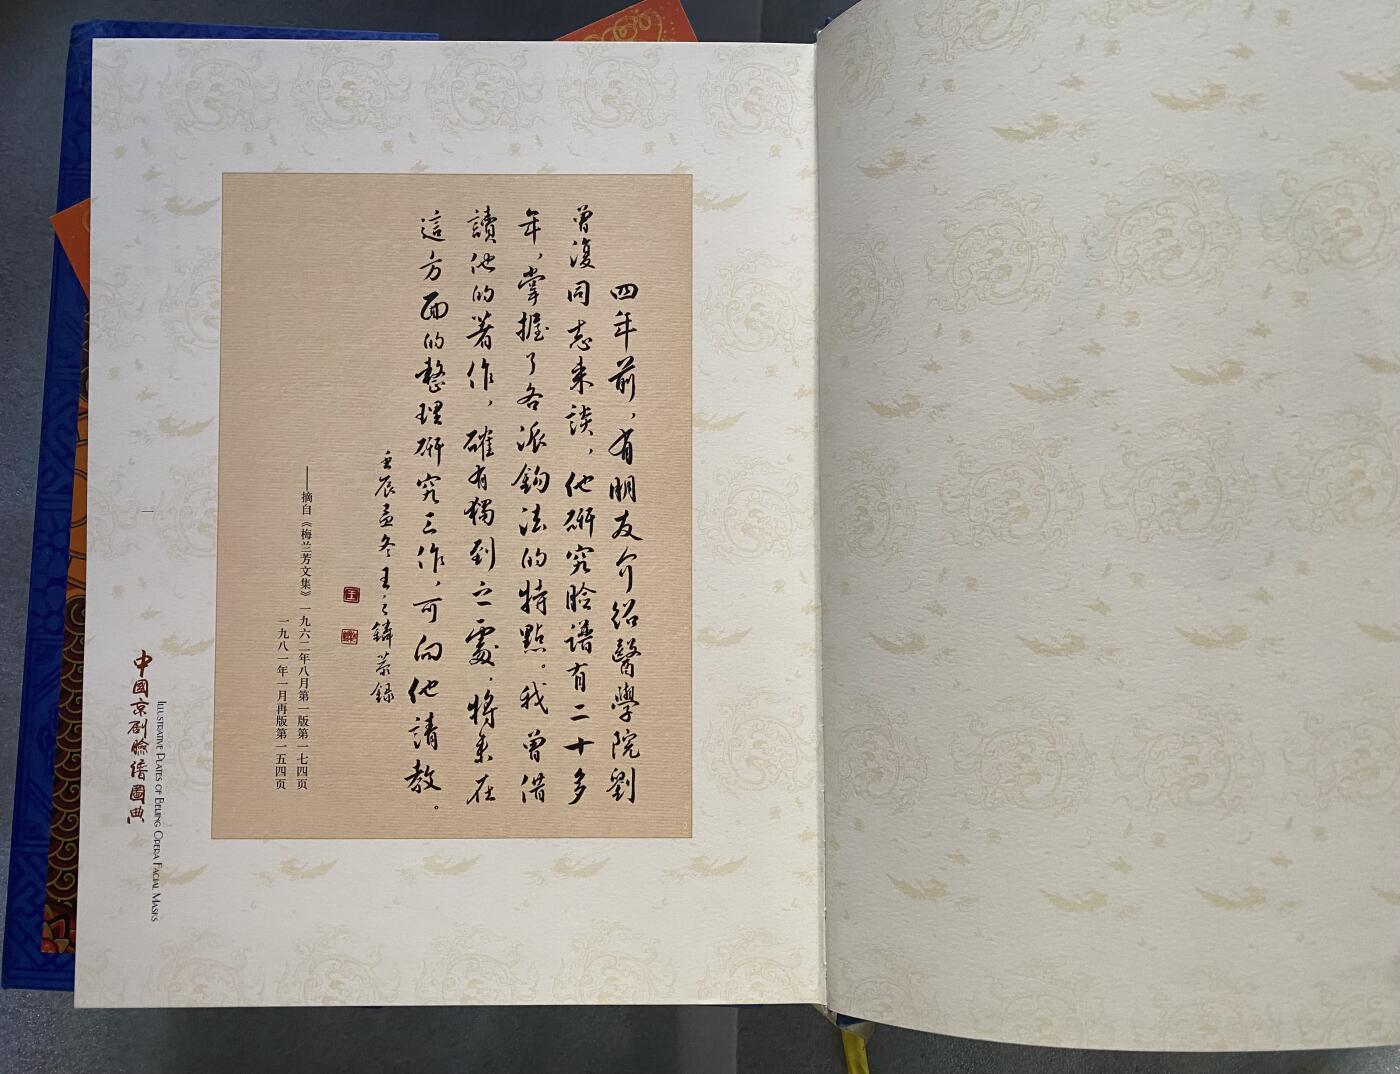 四年前，有朋友介绍醫學院劉
曾復同志来談，他研究脸譜有二十多
年，掌握了各派鈎法的特點。我曾借
讀他的著作，確有獨到之處，将来在
這方面的整理研究工作，可向他請教。
壬辰孟冬王之鏻恭録
——摘自《梅兰芳文集》一九六二年八月第一版第一七四页
一九八一年一月再版第一五四页
一
中國京剧臉譜圖典
ILLUSTRATIVE PLATES OF BEIJING OPERA FACIAL MASKS